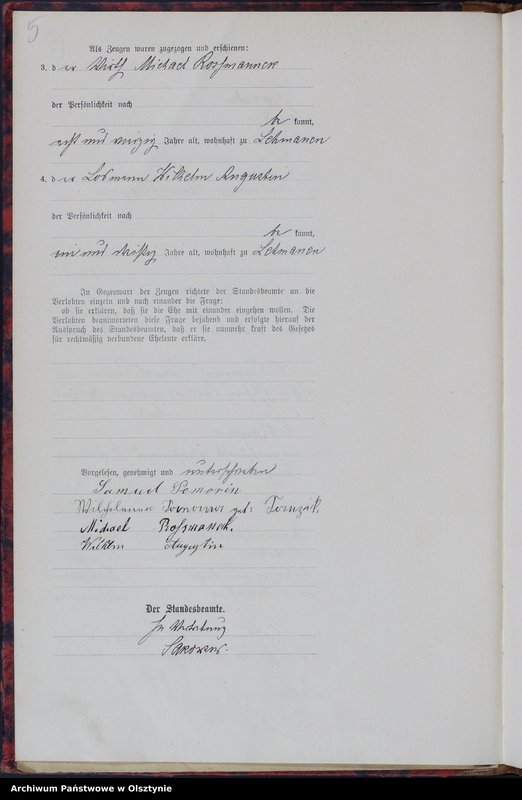 5
Als Zeugen waren zugezogen und erschienen:
3. d er Wirth Michael Rossmanneck
der Persönlichkeit nach
be kannt,
acht und vierzig Jahre alt, wohnhaft zu Lehmanen
4. d er Losmann Wilhelm Augustin
der Persönlichkeit nach
be kannt,
und dreißig Jahre alt, wohnhaft zu Lehmanen
In Gegenwart der Zeugen richtete der Standesbeamte an die
Verlobten einzeln und nach einander die Frage:
ob sie erklären, daß sie die Ehe mit einander eingehen wollen. Die
Verlobten beantworteten diese Frage bejahend und erfolgte hierauf der
Ausspruch des Standesbeamten, daß er sie nunmehr kraft des Gesetzes
für rechtmäßig verbundene Eheleute erkläre.
Vorgelesen, genehmigt und unterschrieben
Samuel Pomorin
Wilhelmine geb:
Michael Roßmaneck.
Wilhelm Augustin
Der Standesbeamte.
In Vertretung
Archiwum Państwowe w Olsztynie